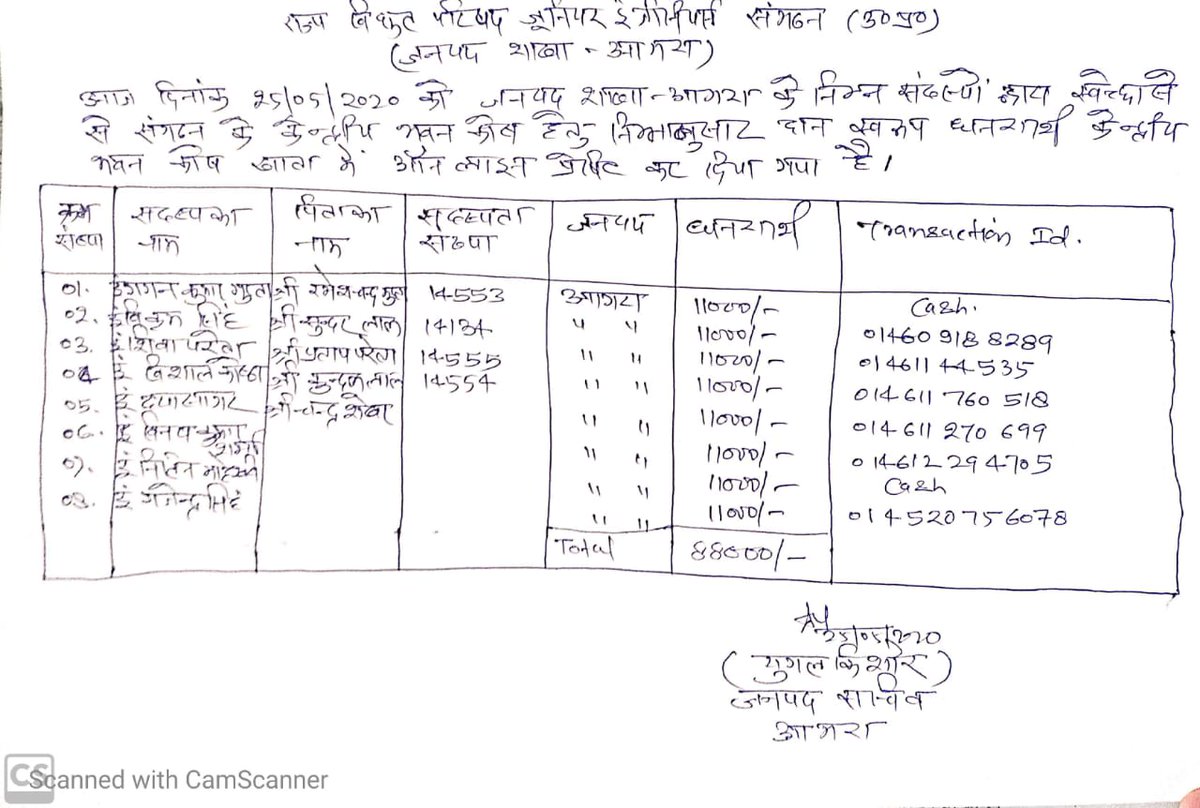 राज्य विद्युत परिषद जूनियर इंजीनियर्स संगठन (उ०प्र०)
(जनपद शाखा - आगरा)
आज दिनांक 25/05/2020 को जनपद शाखा-आगरा के निम्न सदस्यों द्वारा स्वेच्छा से
से संगठन के केन्द्रीय भवन कोष हेतु निम्नानुसार दान स्वरूप धनराशि केन्द्रीय
भवन कोष खाता में ऑन लाइन प्रेषित कर दिया गया है।
क्रम संख्या सदस्य का नाम पिता का नाम सदस्यता संख्या जनपद धनराशि Transaction Id.
01. इं गगन कुमार गुप्ता श्री रमेश चन्द्र गुप्ता 14553 आगरा 11000/- Cash.
02. इं विक्रम सिंह श्री सुन्दर लाल 14134 " " 11000/- 014609188289
03. इं शिवा परेता श्री प्रताप परेता 14555 " " 11000/- 01461144535
04 इं विशाल श्री कुन्दन लाल 14554 " " 11000/- 014611760518
05. इं दयासागर श्री चन्द्र शेखर " " 11000/- 014611270699
06. इं विनय कुमार " " 11000/- 014612294705
07. इं नितिन " " 11000/- Cash
08. इं गजेन्द्र सिंह " " 11000/- 014520756078
Total 88000/-
25/05/2020
(युगल किशोर)
जनपद सचिव
आगरा
CS
Scanned with CamScanner